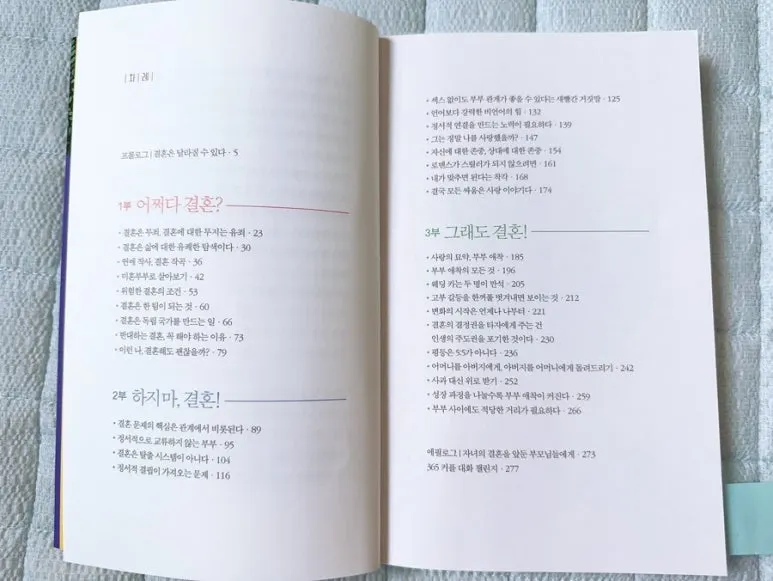 |차|례|
프롤로그 | 결혼은 달라질 수 있다 · 5
1부 어쩌다 결혼?
• 결혼은 무죄, 결혼에 대한 무지는 유죄 · 23
• 결혼은 삶에 대한 유쾌한 탐색이다 · 30
• 연애 작사, 결혼 작곡 · 36
• 미혼부부로 살아보기 · 42
• 위험한 결혼의 조건 · 53
• 결혼은 한 팀이 되는 것 · 60
• 결혼은 독립 국가를 만드는 일 · 66
• 반대하는 결혼, 꼭 해야 하는 이유 · 73
• 이런 나, 결혼해도 괜찮을까? · 79
2부 하지 마, 결혼!
• 결혼 문제의 핵심은 관계에서 비롯된다 · 89
• 정서적으로 교류하지 않는 부부 · 95
• 결혼은 탈출 시스템이 아니다 · 104
• 정서적 결핍이 가져오는 문제 · 116
• 섹스 없이도 부부 관계가 좋을 수 있다는 새빨간 거짓말 · 125
• 언어보다 강력한 비언어의 힘 · 132
• 정서적 연결을 만드는 노력이 필요하다 · 139
• 그는 정말 나를 사랑했을까? · 147
• 자신에 대한 존중, 상대에 대한 존중 · 154
• 로맨스가 스릴러가 되지 않으려면 · 161
• 내가 맞추면 된다는 착각 · 168
• 결국 모든 싸움은 사랑 이야기다 · 174
3부 그래도 결혼!
• 사랑의 묘약, 부부 애착 · 185
• 부부 애착의 모든 것 · 196
• 웨딩 카는 두 명이 만석 · 205
• 고부 갈등을 한 꺼풀 벗겨내면 보이는 것 · 212
• 변화의 시작은 언제나 나부터 · 221
• 결혼의 결정권을 타자에게 주는 건
인생의 주도권을 포기한 것이다 · 230
• 평등은 5:5가 아니다 · 236
• 어머니를 아버지에게, 아버지를 어머니에게 돌려드리기 · 242
• 사과 대신 위로 받기 · 252
• 성장 과정을 나눌수록 부부 애착이 커진다 · 259
• 부부 사이에도 적당한 거리가 필요하다 · 266
에필로그 | 자녀의 결혼을 앞둔 부모님들에게 · 273
365 커플 대화 챌린지 · 277